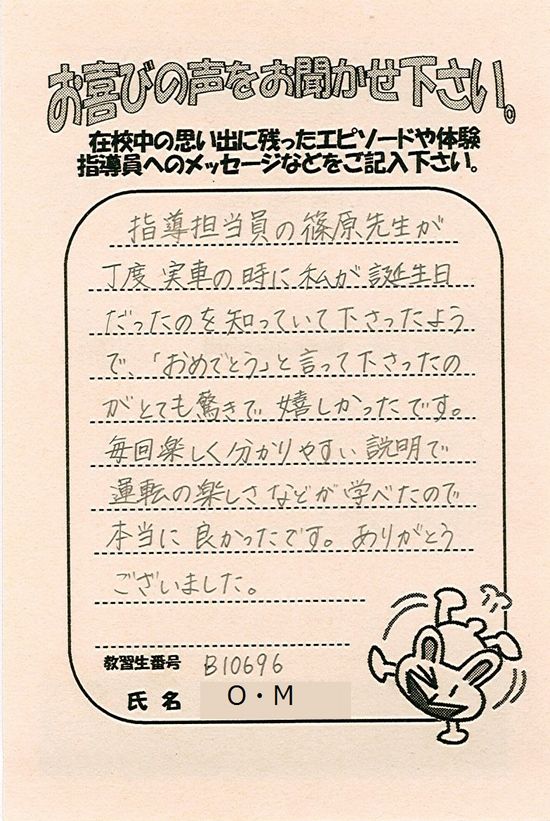 お喜びの声をお聞かせ下さい。
在校中の思い出に残ったエピソードや体験
指導員へのメッセージなどをご記入下さい。
指導担当員の篠原先生が
丁度実車の時に私が誕生日
だったのを知っていて下さったよう
で、「おめでとう」と言って下さったの
がとても驚きで嬉しかったです。
毎回楽しく分かりやすい説明で
運転の楽しさなどが学べたので
本当に良かったです。ありがとう
ございました。
教習生番号 B10696
氏名 O・M